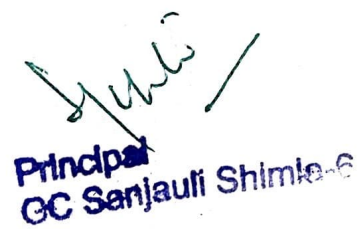 Principal
GC Sanjauli Shimla-6